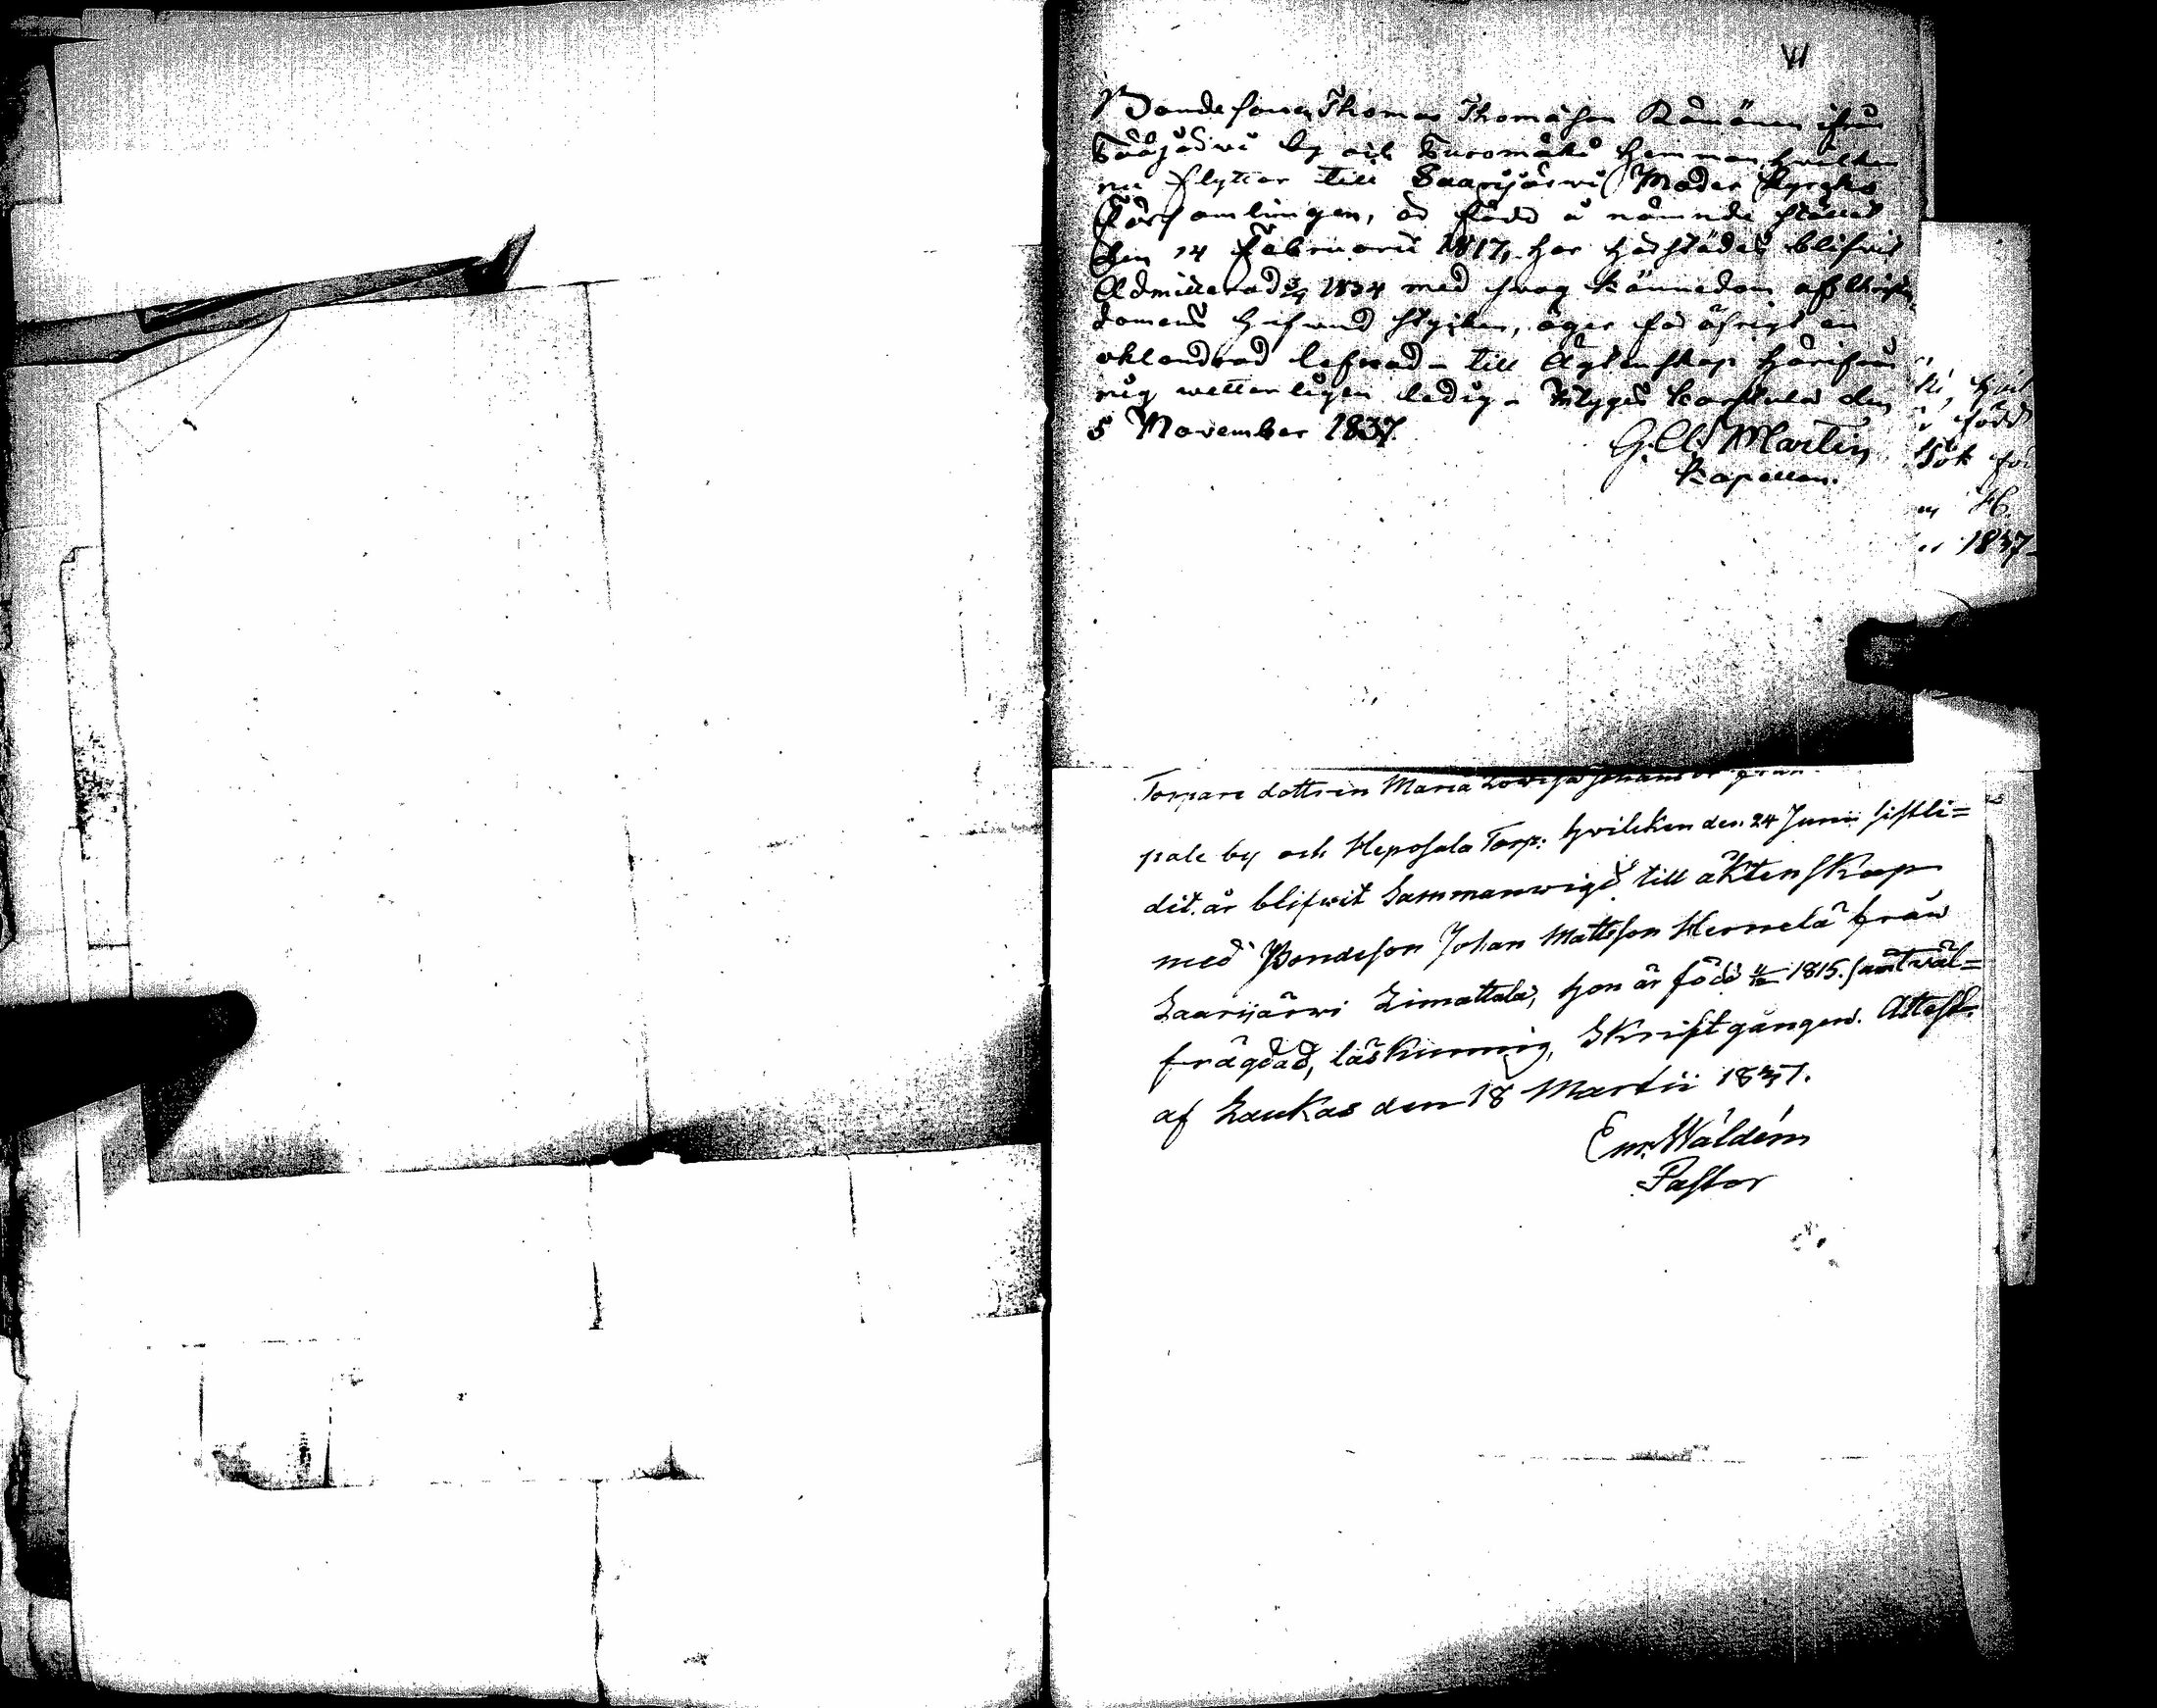 VI
Bondesonen Thomas Thomasson Kämänen ifrån
Sääjärvi by och Suromäki hemman hvilken
nu flyttar till Saarijärwi Moder Kyrcko
Församlingen, är född å nämnde ställe
den 14 Februarii 1817, har härstädes blifwit
Admitterad 1834 med swag kännedom af Christen
domens hufwud stycken, äger för öfrigt en
oklandrad lefnad - till Ägtenskap härifrån
mig wetterligen ledig - Intygas Karstula den
5 November 1837.
G. A. Martin
Kapellan.
född
1837
Torpare dottren Maria Lowisa Johansdr från
pale by och Heposala Torp: hvilcken den 24 Junii sistli=
dit år blifwit Sammanwigd till äktenskap
med Bondeson Johan Mattsson Hernelä från
Saarijärwi Limattala, hon är född 1815. samt wäl=
frägdad, läskunnig, Skriftgången. Attest.
af Laukas den 18 Martii 1837.
Em. Waldén
Pastor